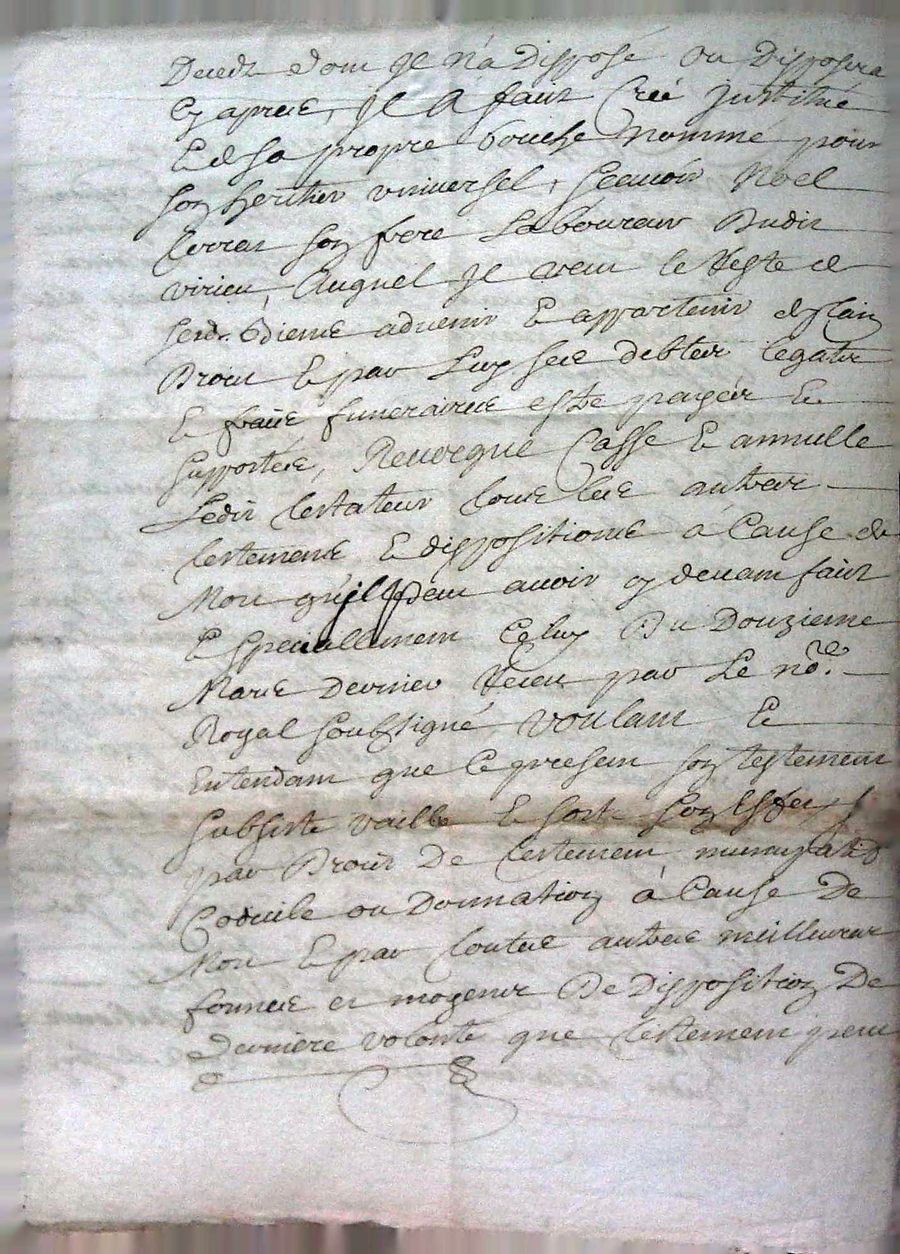 Decedz dont Jl n'a Disposé ou Disposera
Cy aprez, Jl A faict Creé Justitué
E de sa propre bouche nommé pour
son heritier vniuersel, scauoir Noel
son frere Laboureur Dudit
virieu, Auquel Jl veut le Reste de
sesd. biens aduenir E appartenir de plain
Droit E par Luy ses debtes legatz
E fraix funeraires estre payéz E
supportéz, Reuoque Casse E annulle
Ledit testateur tous les autres
testements E dispositions à Cause de
Mort qu'il peut auoir cy deuant faict
E speciallement Celuy Du Douzieme
Mars Dernier Receu par Le no.re
Royal soubsigné, voulant E
Entendant que Ce present son testement
subsiste vaille E sorte son Effect
par Droit De testement nuncupatif
Codicile ou Donnation à Cause De
Mort E par toutes autres meilleures
formes et moyens De Disposition De
Derniere volonte que testement peut